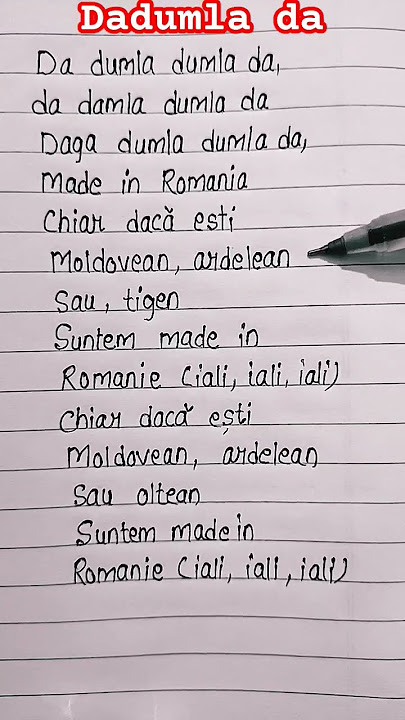 Dadumla da
Da dumla dumla da,
da damla dumla da
Daga dumla dumla da,
Made in Romania
Chiar dacă esti
Moldovean, ardelean
Sau, tigen
Suntem made in
Romanie (iali, iali, iali)
Chiar dacă ești
Moldovean, ardelean
Sau oltean
Suntem made in
Romanie (iali, iali, iali)